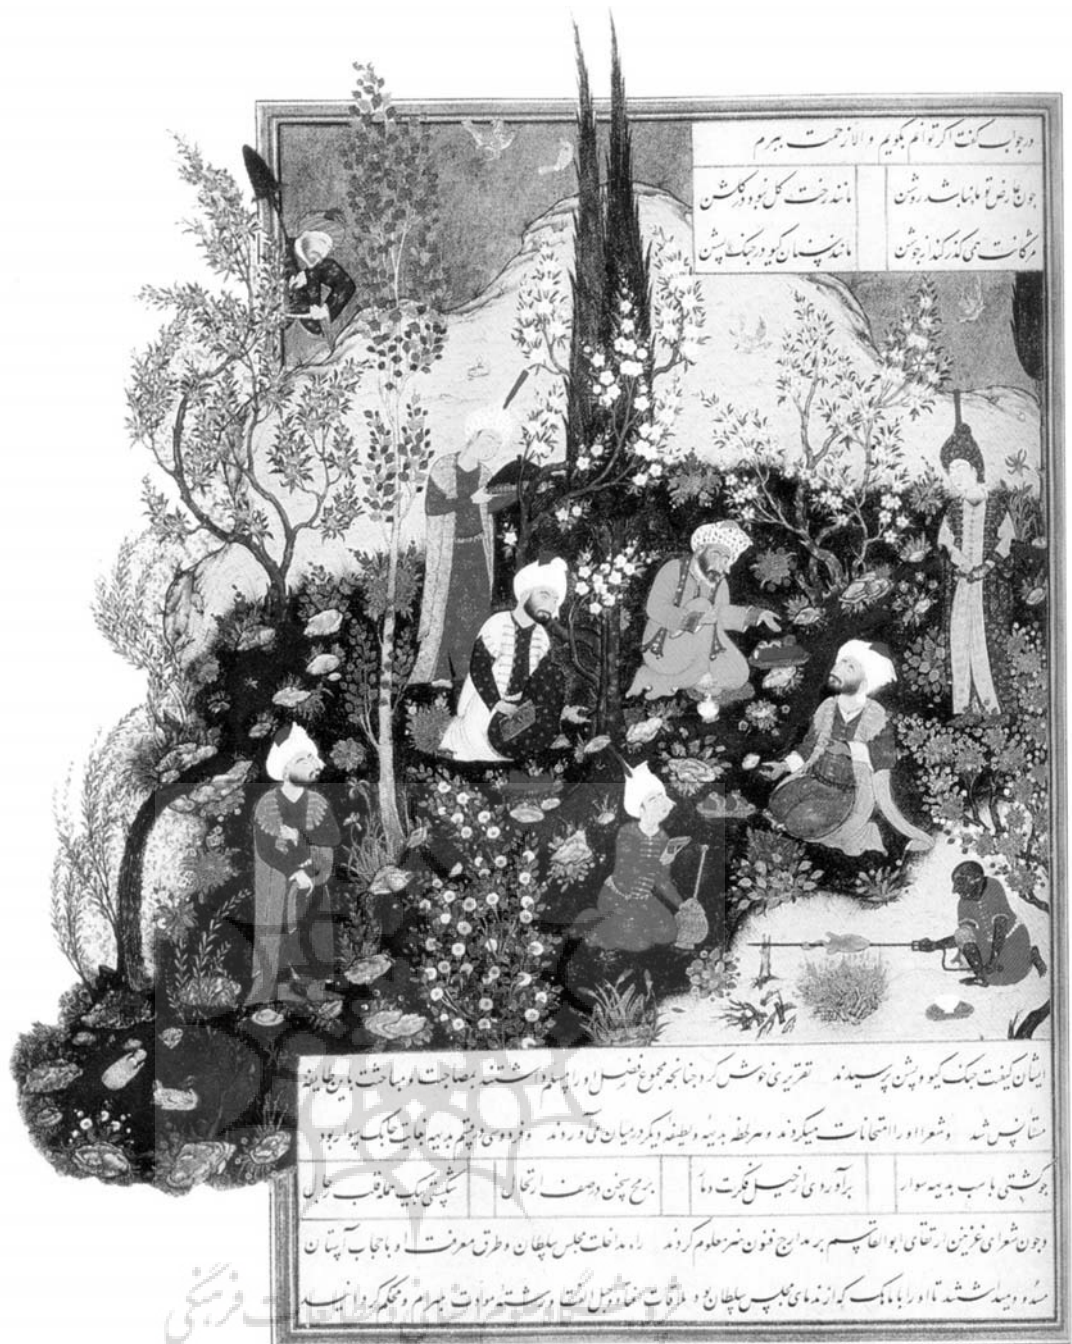 در جواب گفت اگر توانم بگویم و الا زحمت ببرم
چون عارض تو ماه نباشد روشن مانند رخت گل نبود در گلشن
مژگانت همی گذر کند از جوشن مانند سنان گیو در جنگ پشن
ایشان کیفیت جنگ گیو و پشن پرسیدند تقریری خوش کرد چنانچه مجموع فضل او را مسلم داشتند بمصاحبت و مباحث
مستانس شد و شعرا او را امتحانات میکردند و هر لحظه بدیهه و لطیفه دیگر در میان می آوردند و فردوسی در نظم بدیهه بغایت چابک سوار بود
چو گشتی باسب بدیهه سوار برآوردی از خیل فکرت دمار برمح سخن در صف ارتجال شکستی بیک حمله قلب رجال
و چون شعرای غزنین ارتقای ابوالقاسم بر مدارج فنون هنر معلوم کردند راه مداخلت مجلس سلطان و طرق معرفت او با حجاب آستان
مسدود میداشتند تا او را با ماهک که از ندمای مجلس سلطان بود ملاقات افتاد و رشته مودات مبرم و محکم کردانید